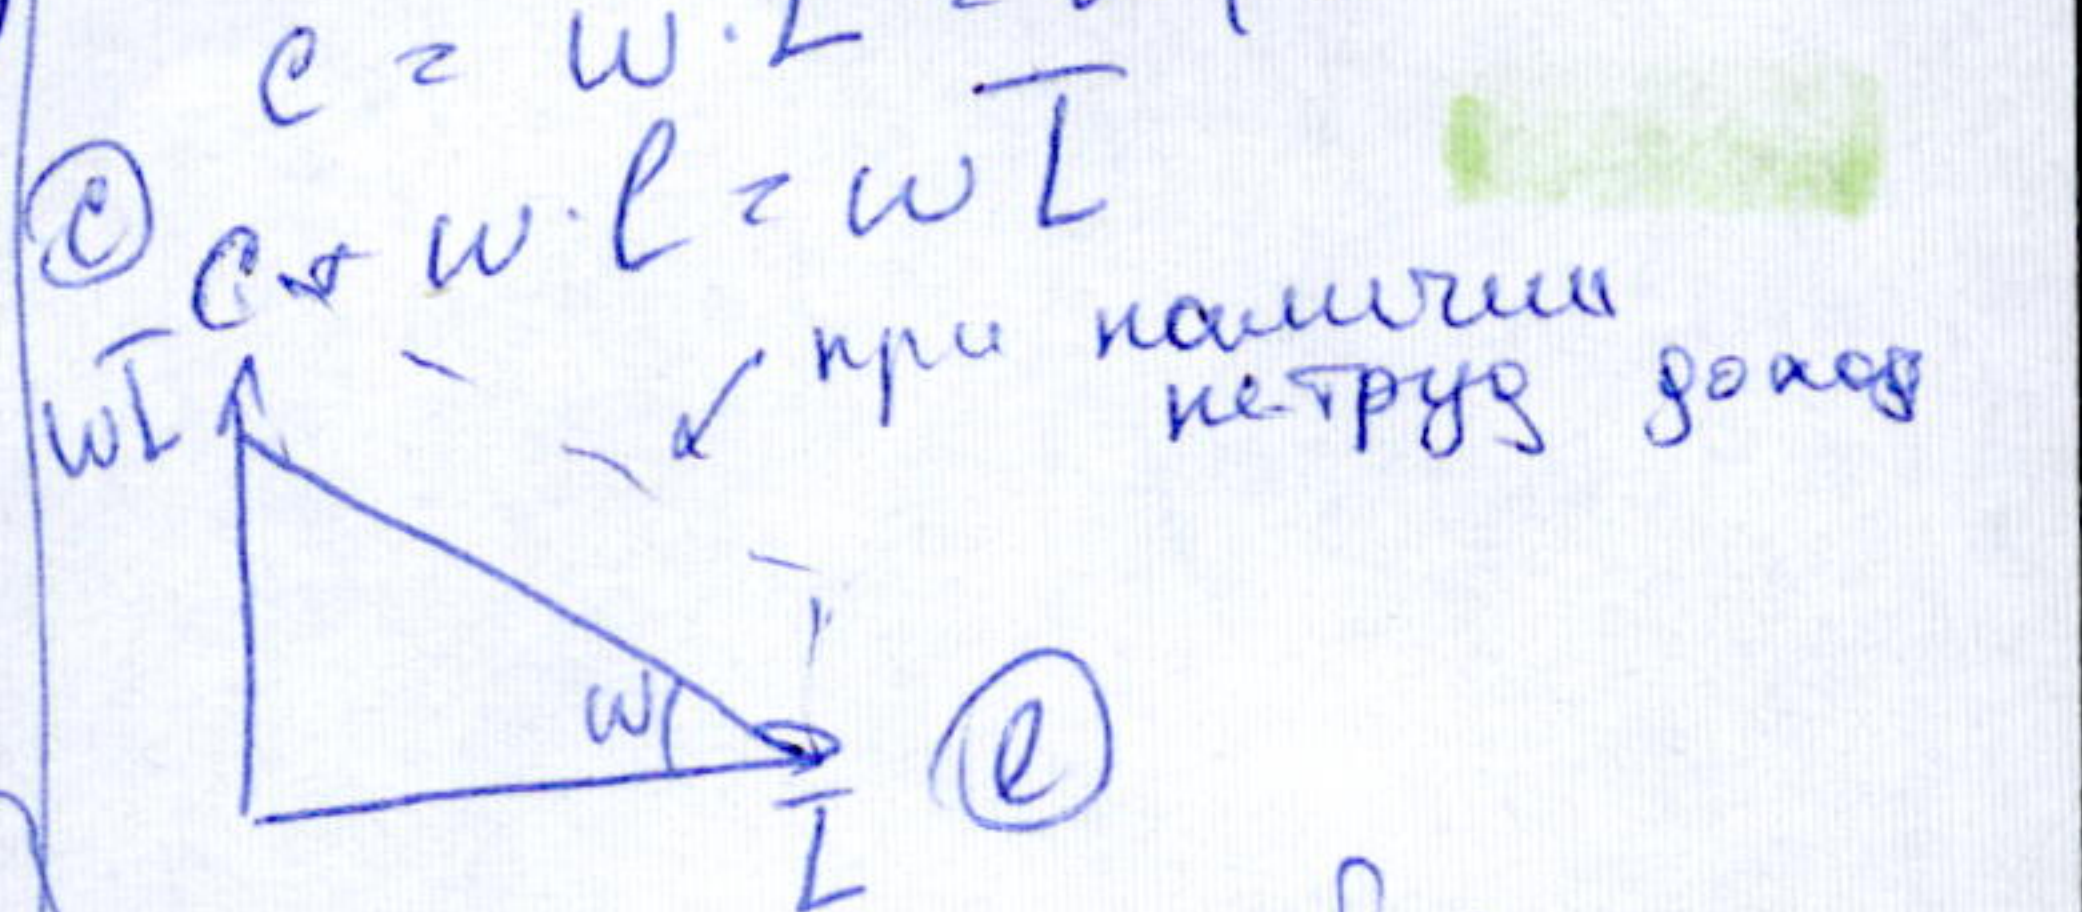 C = w · L
C + w · l = w L̅
при наличии
нетруд доход
C
wL̅
w
l
L̅